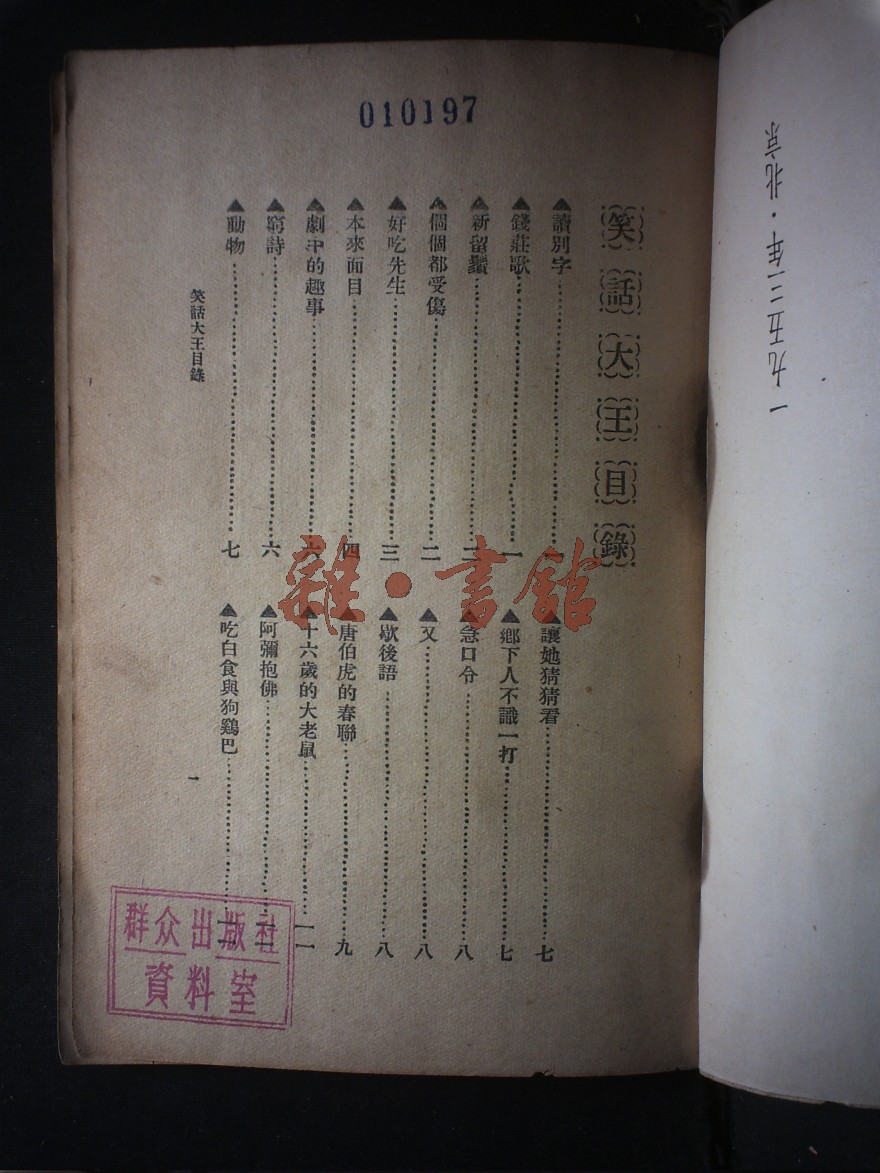 010197
笑話大王目錄
▲讀別字
▲錢莊歌……一
▲新留鬚
▲個個都受傷……二
▲好吃先生……三
▲本來面目……四
▲劇中的趣事……六
▲窮詩……六
▲動物……七
▲讓她猜猜看……七
▲鄉下人不識一打……七
▲急口令……八
▲又……八
▲歇後語……八
▲唐伯虎的春聯……九
▲十六歲的大老鼠……一一
▲阿彌抱佛
▲吃白食與狗鷄巴
笑話大王目錄
一
雜·書館
群众出版社
資料室
一九五三年·北京